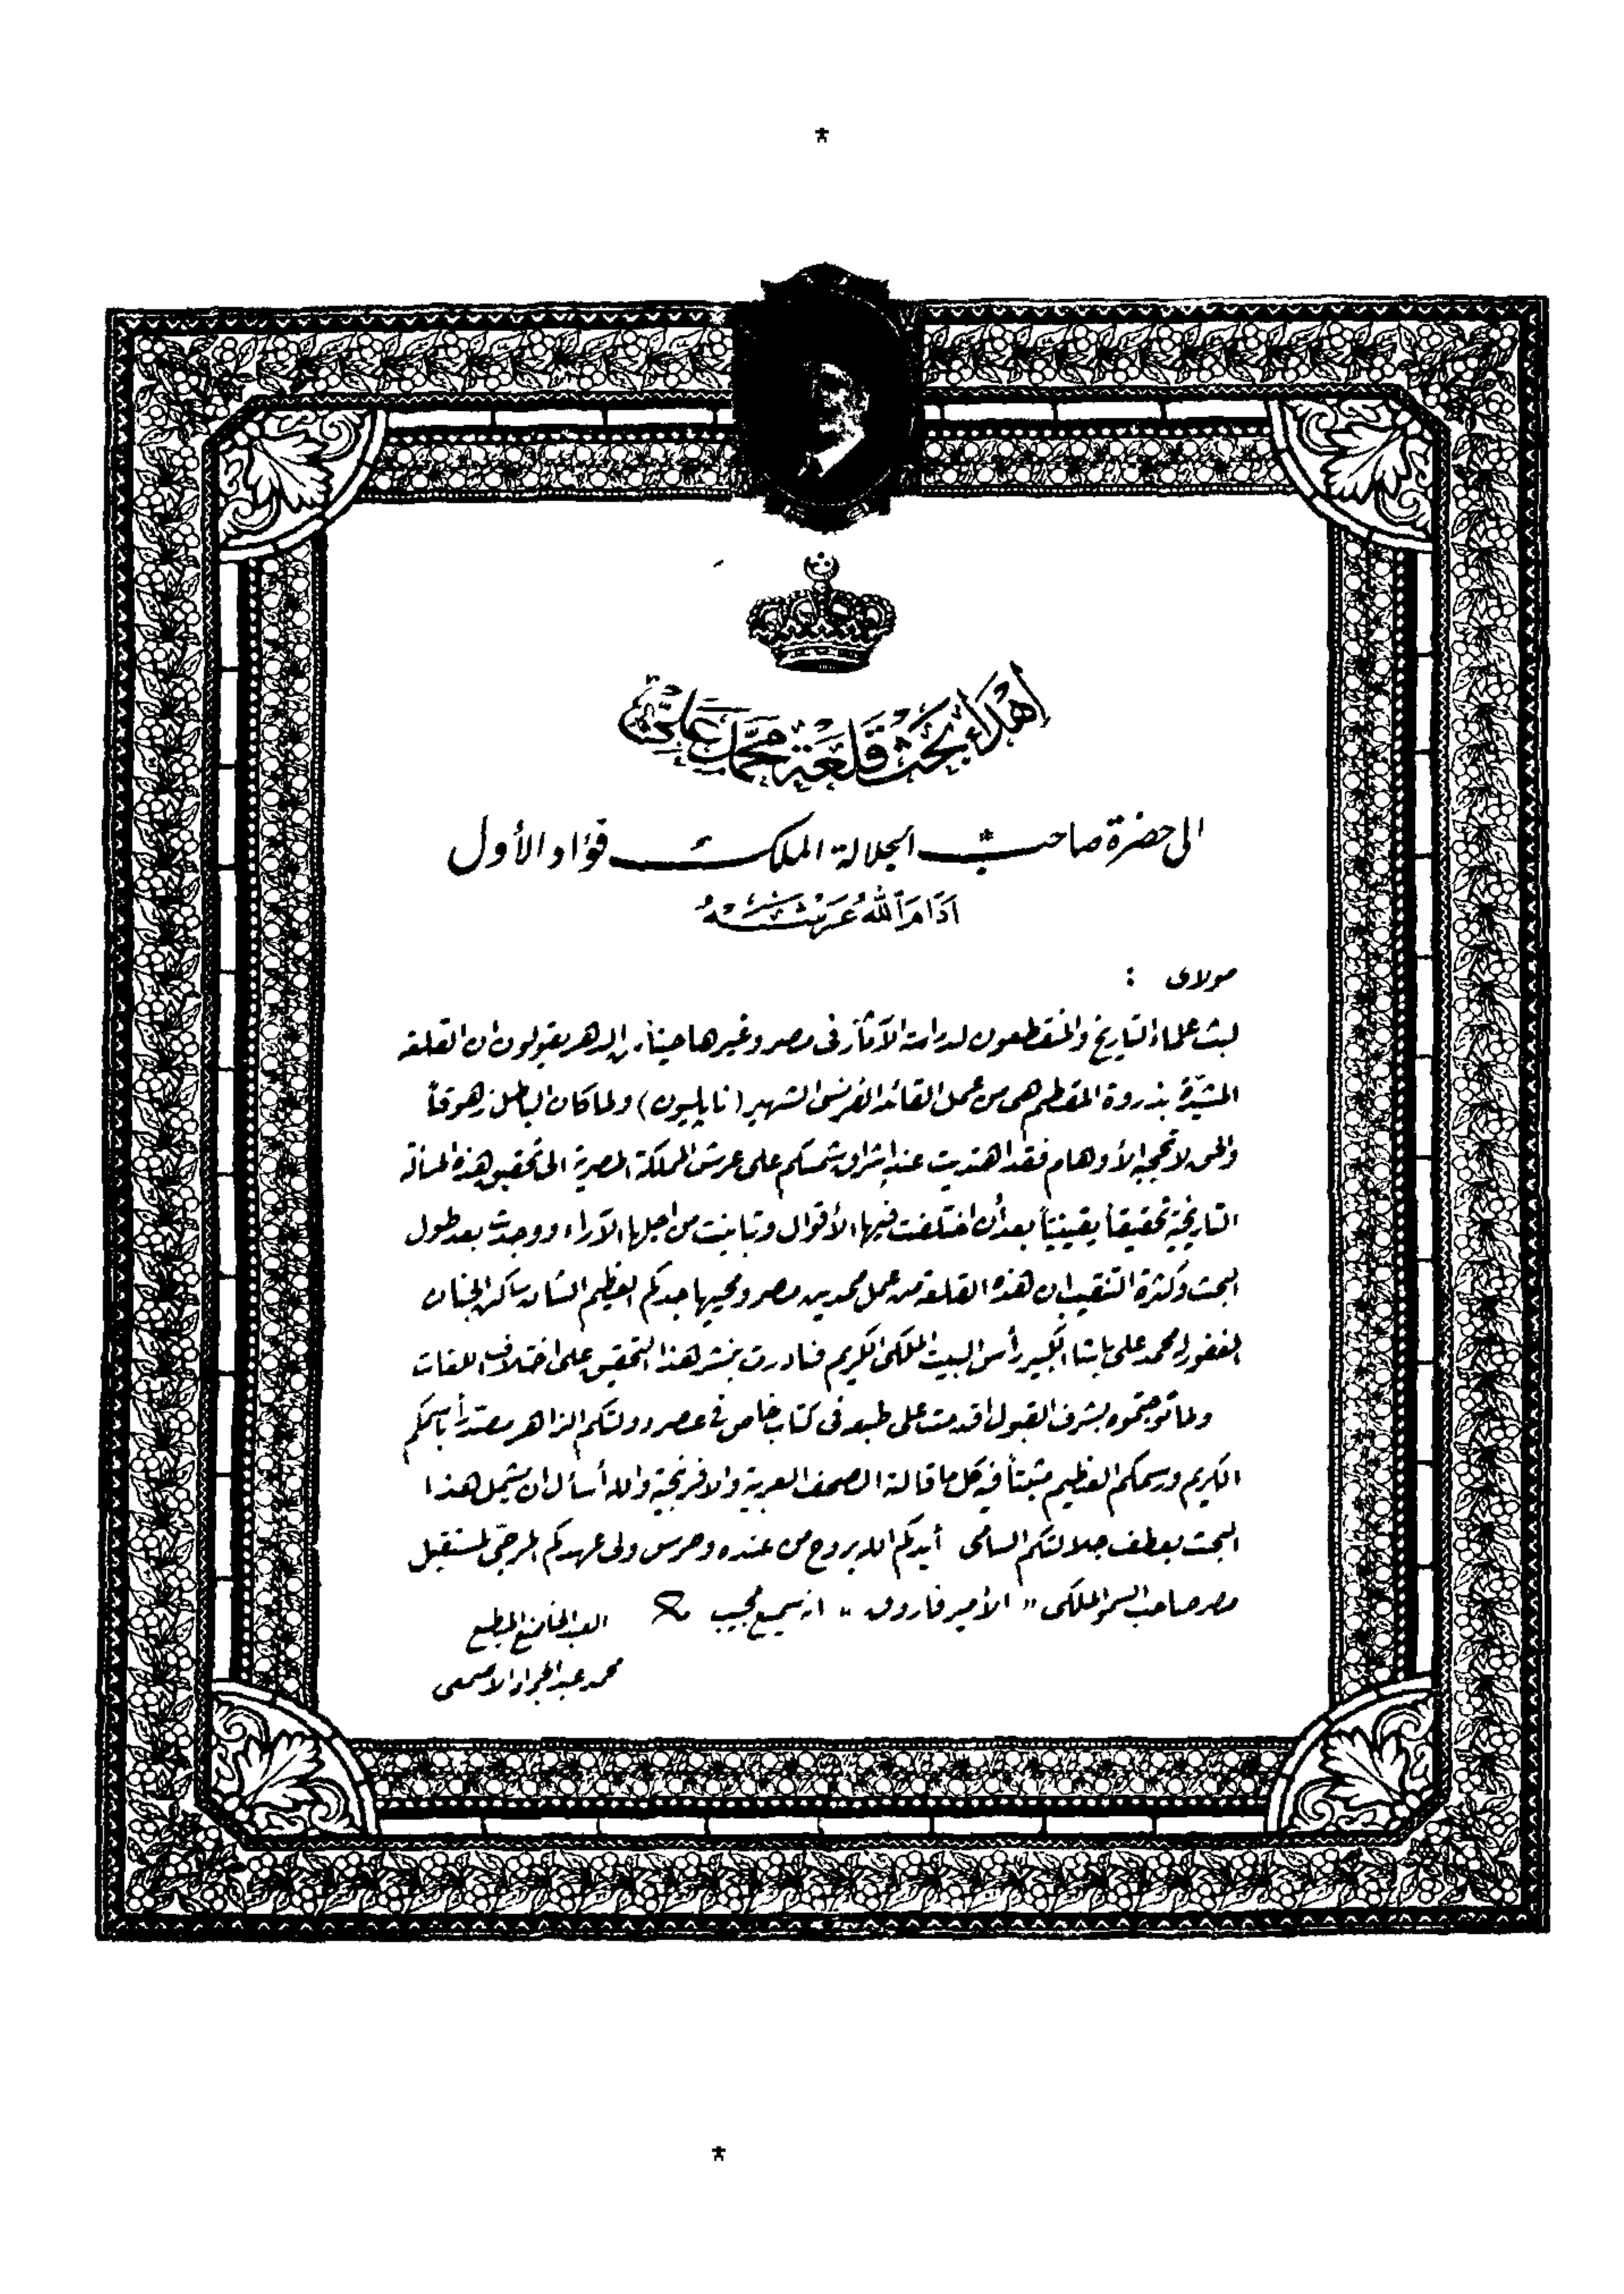 إهداء بحث قلعة محمد علي
الى حضرة صاحب الجلالة الملك فؤاد الأول
أدام الله عرشه
مولاى :
لبث علماء التاريخ والمنقطعون لدراسة الآثار فى مصر وغيرها حينا من الدهر يقولون ان القلعة
المشيّدة بذروة المقطم هى من عمل القائد الفرنسى الشهير (نابليون) ولما كان الباطل زهوقاً
والحق لا تحجبه الأوهام فقد اهتديت عند إشراق شمسكم على عرش المملكة المصرية الى تحقيق هذه المسألة
التاريخية تحقيقاً يقينياً بعد أن اختلفت فيها الأقوال وتباينت من اجلها الآراء ووجدت بعد طول
البحث وكثرة التنقيب ان هذه القلعة من عمل محمدين مصر ومحييها جدكم العظيم الشان ساكن الجنان
المغفور له محمد على باشا الكبير رأس البيت الملكى الكريم فبادرت بنشر هذا التحقيق على اختلاف اللغات
ولما توجتموه بشرف القبول اقدمت على طبعه فى كتاب خاص فى عصر دولتكم الزاهر مصدّراً باسمكم
الكريم ورسمكم العظيم مثبتاً فيه كل ما قالته الصحف العربية والافرنجية والله أسأل ان يشمل هذا
البحث بعطف جلالتكم السامى أيدكم الله بروح من عنده وحرس ولى عهدكم المرجّى لمستقبل
مصر صاحب السمو الملكى " الأمير فاروق " انه سميع مجيب
العبد الخاضع المطيع
محمد عبد الجواد الاصمعى